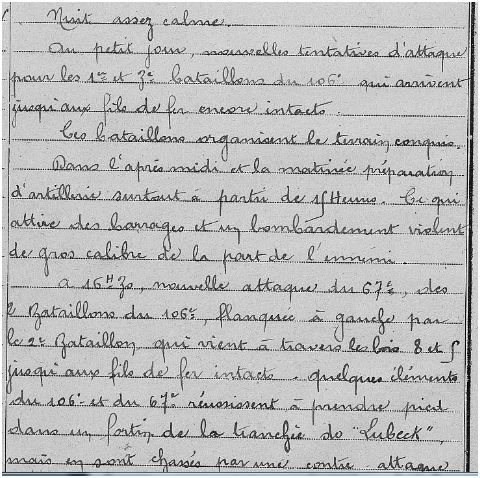 Nuit assez calme.
Au petit jour, nouvelles tentatives d'attaque
pour les 1er et 3e bataillons du 106e qui arrivent
jusqu'aux fils de fer encore intacts.
Ces bataillons organisent le terrain conquis.
Dans l'après midi et la matinée préparation
d'artillerie surtout à partir de 15 Heures. Ce qui
attire des barrages et un bombardement violent
de gros calibre de la part de l'ennemi.
a 16H30, nouvelle attaque du 67e, des
2 Bataillons du 106e, flanquée à gauche par
le 2e Bataillon qui vient à travers les bois 8 et 5
jusqu'aux fils de fer intacts - quelques éléments
du 106e et du 67e réussissent à prendre pied
dans un fortin de la tranchée de "Lubeck",
mais en sont chassés par une contre-attaque